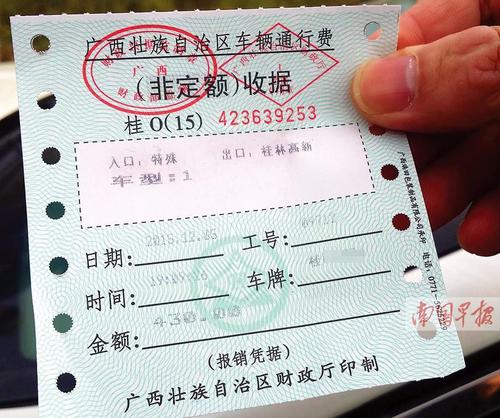 广西壮族自治区车辆通行费
(非定额)收据
广西
桂 O(15) 423639253
入口：特殊 出口：桂林高新
车型：1
日期： 2015.12.05 工号：
时间： 车牌： 桂
金额： 430.00
(报销凭据)
广西壮族自治区财政厅印制
南国早报